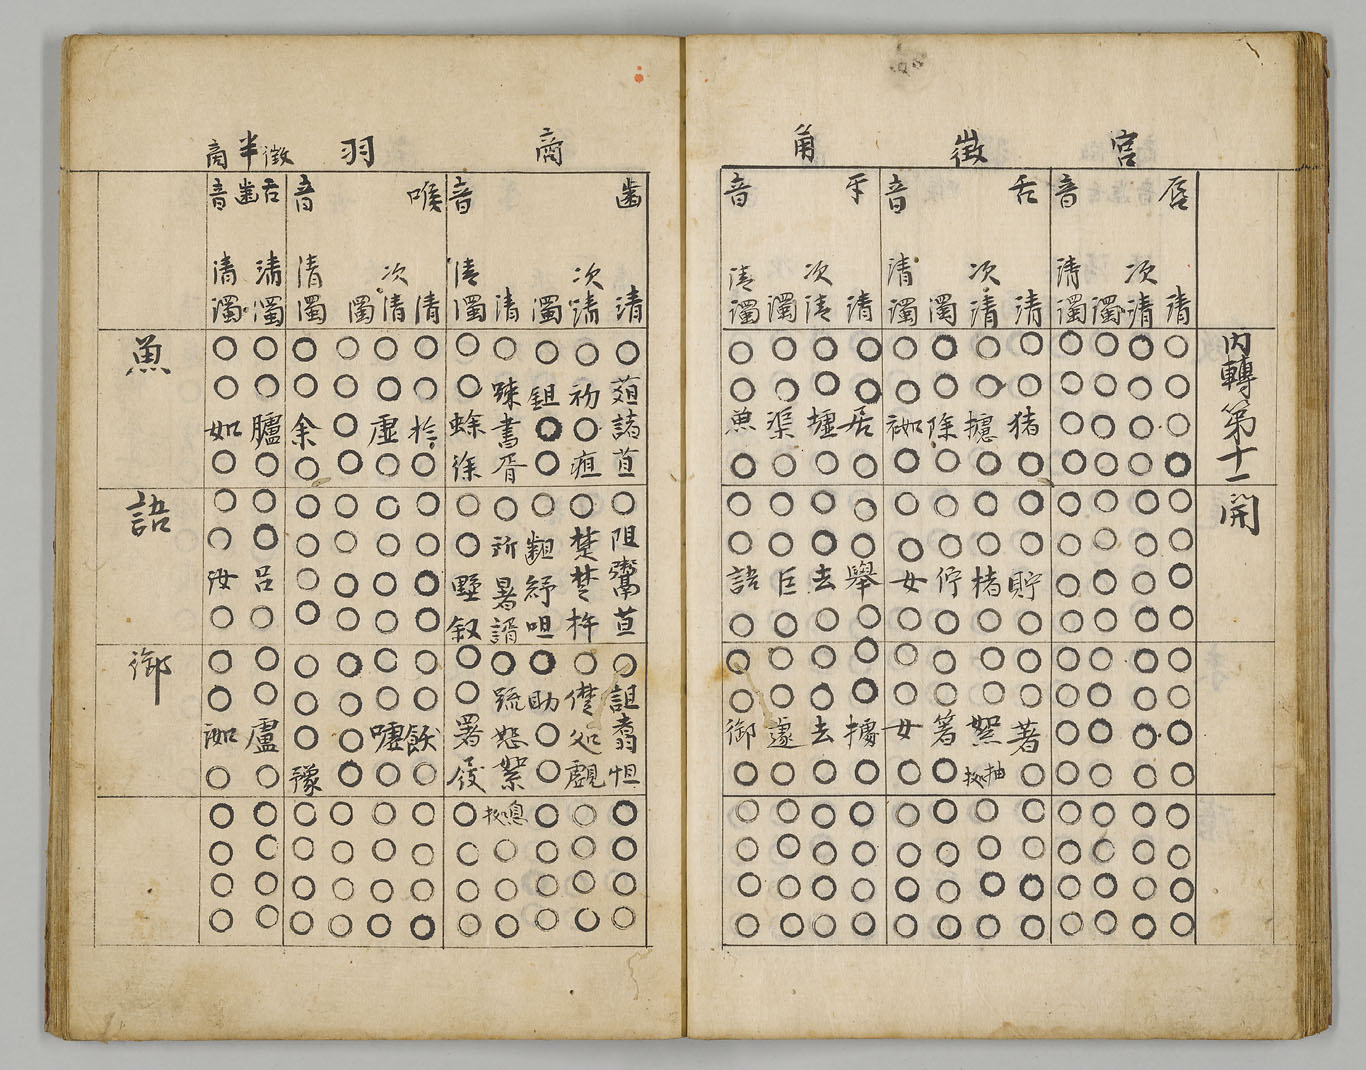 宮
徵
角
商
羽
半徵商
內轉第十一開
脣音
舌音
牙音
齒音
喉音
舌齒音
清 次清 濁 清濁
清 次清 濁 清濁
清 次清 濁 清濁
清 次清 濁 清 清濁
清 次清 濁 清濁
清濁 清濁
○○○○ ○○○○ ○○○○ ○○○○○ ○○○○ ○○
○○○○ ○○○○ ○○○○ 葅初鉏踈○ ○○○○ ○○
○○○○ 猪攄除袽 居墟渠魚 諸○○書蜍 於虛○余 臚如
○○○○ ○○○○ ○○○○ 苴疽○胥徐 ○○○○ ○○
魚
○○○○ ○○○○ ○○○○ ○○○○○ ○○○○ ○○
○○○○ ○○○○ ○○○○ 阻楚齟所○ ○○○○ ○○
○○○○ 貯楮佇女 舉去巨語 鬻杵紓暑墅 ○○○○ 呂汝
○○○○ ○○○○ ○○○○ 苴杵咀諝叙 ○○○○ ○○
語
○○○○ ○○○○ ○○○○ ○○○○○ ○○○○ ○○
○○○○ ○○○○ ○○○○ 詛儊助疏○ ○○○○ ○○
○○○○ 著絮箸女 據去遽御 翥処○恕署 飫噓○○ 盧洳
○○○○ ○抽据○○ ○○○○ 怛覷○絮 ○○○豫 ○○
御
○○○○ ○○○○ ○○○○ ○○○息据○ ○○○○ ○○
○○○○ ○○○○ ○○○○ ○○○○○ ○○○○ ○○
○○○○ ○○○○ ○○○○ ○○○○○ ○○○○ ○○
○○○○ ○○○○ ○○○○ ○○○○○ ○○○○ ○○